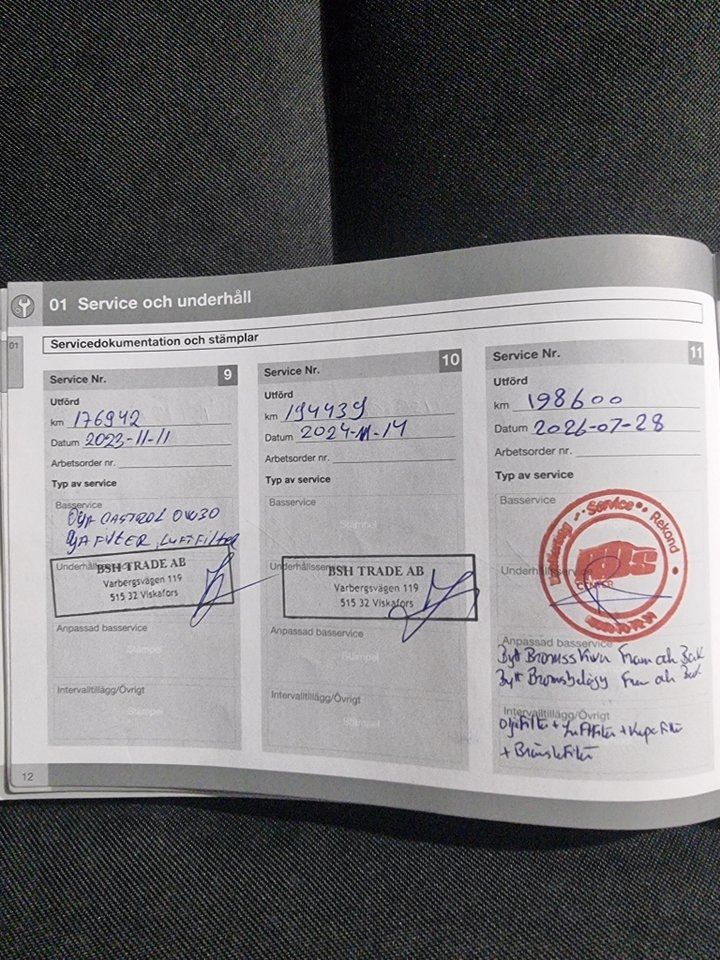 01 Service och underhåll
01
Servicedokumentation och stämplar
Service Nr. 9
Utförd
km 176942
Datum 2023-11-11
Arbetsorder nr.
Typ av service
Basservice
OlJA CASTROL 0W30
Underhållsservice
BSH TRADE AB
Varbergsvägen 119
515 32 Viskafors
Anpassad basservice
Stämpel
Intervalltillägg/Övrigt
Stämpel
12
Service Nr. 10
Utförd
km 194439
Datum 2024-11-14
Arbetsorder nr.
Typ av service
Basservice
Stämpel
BSH TRADE AB
Varbergsvägen 119
515 32 Viskafors
Anpassad basservice
Stämpel
Intervalltillägg/Övrigt
Stämpel
Service Nr. 11
Utförd
km 198600
Datum 2026-07-28
Arbetsorder nr.
Typ av service
Basservice
Service Rekond
CENTER
Anpassad basservice
Bytt Bromsskivor Fram och Bak
Bytt Bromsbelägg Fram och Bak
Intervalltillägg/Övrigt
Oljefilter + Luftfilter + Kupefilter
+ Bränslefilter